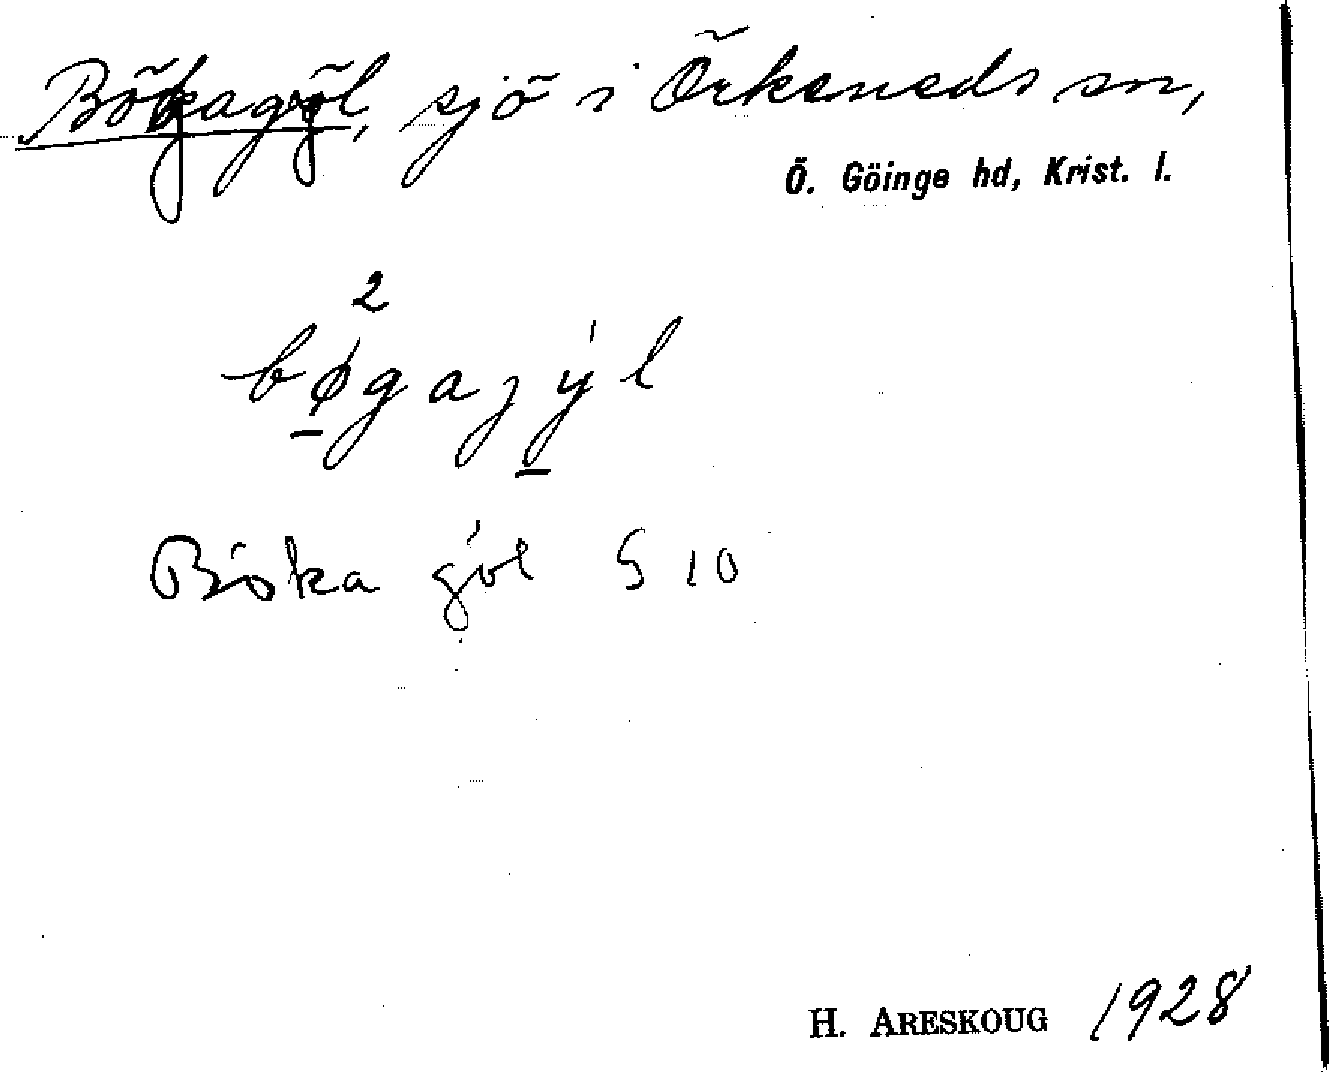 Bökagöl, sjö i Örkeneds sn,
Ö. Göinge hd, Krist. l.
2
bøgajýl
Böka göl S 10
H. ARESKOUG 1928